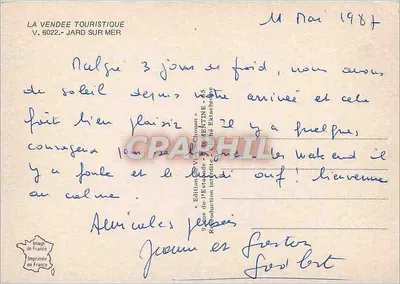 LA VENDEE TOURISTIQUE
V. 6022.- JARD SUR MER
11 Mai 1987
Malgré 3 jours de froid, nous avons
du soleil depuis notre arrivée et cela
fait bien plaisir il y a quelques
courageux pour se les Week end il
y a foule et le lundi ouf! bienvenue
au calme.
Amicales pensées
Jeanne et Gaston
CPARPHIL
Reproduction interdite
Image
de France
Imprimée
en France